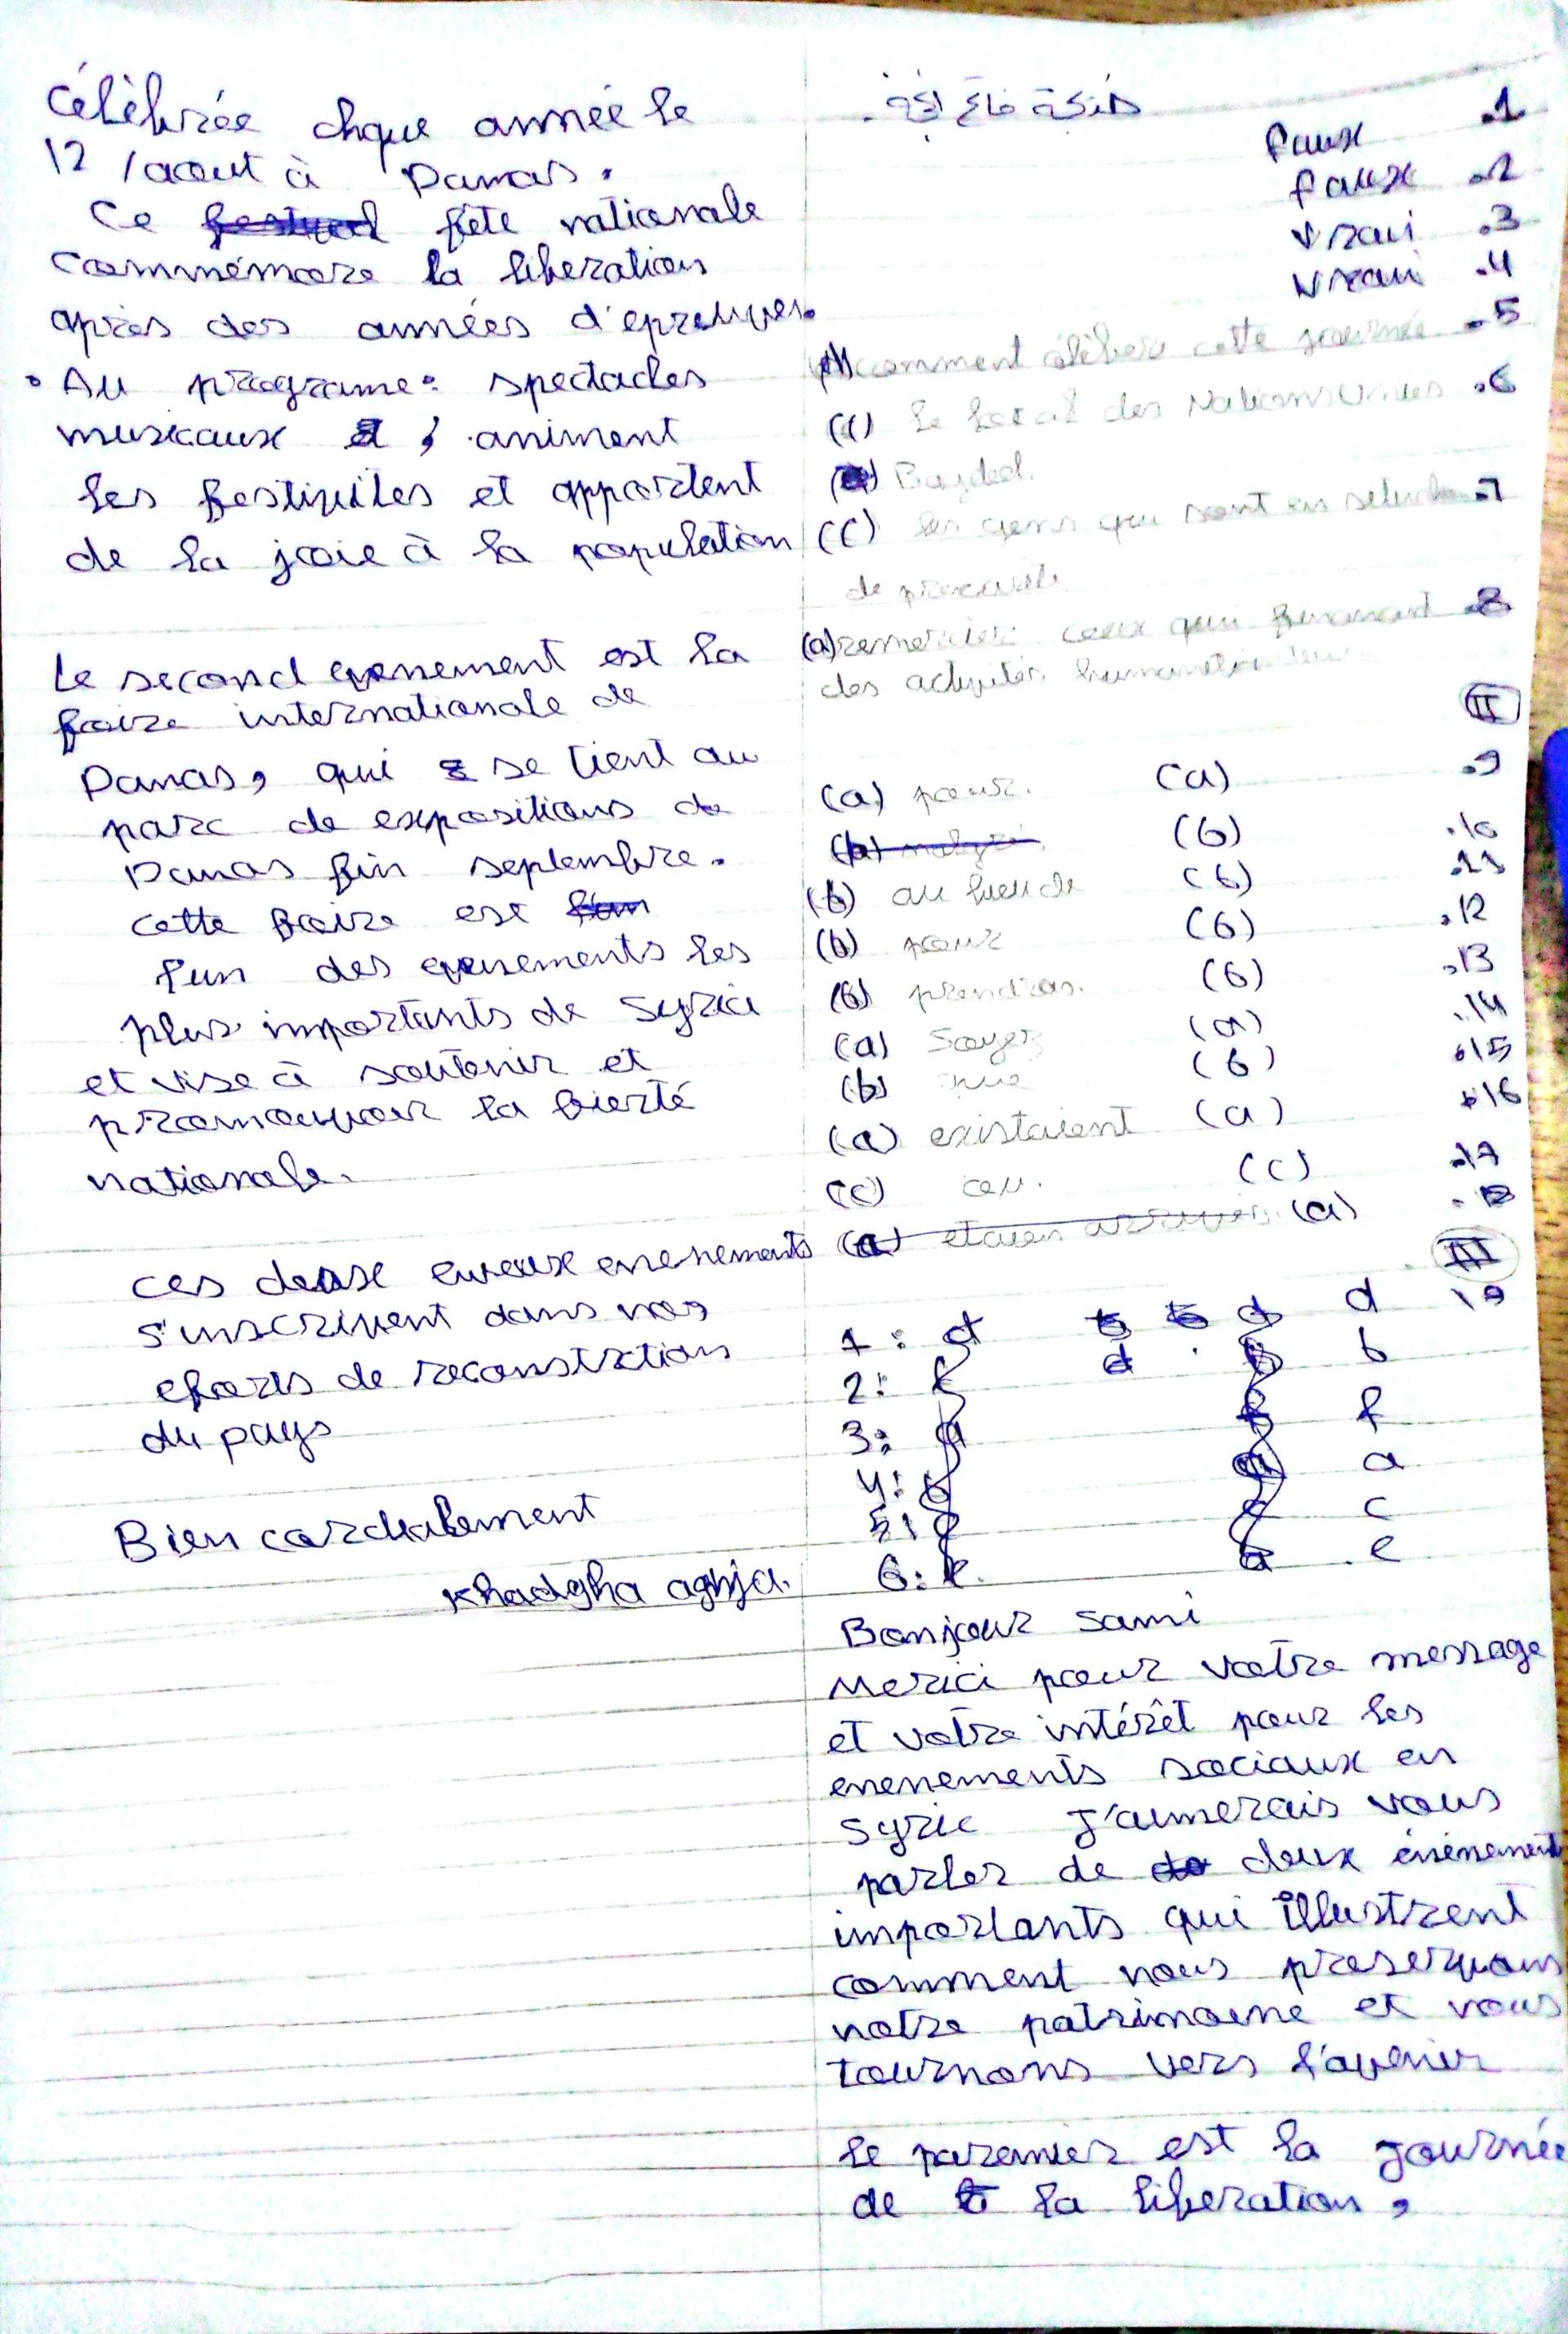 .1 faux
.2 faux
.3 vrai
.4 vrai
.5 comment célèbrer cette journée
.6 (c) le local des Nations Unies
Bagdad.
.7 (c) les gens qui sont en
de précarité
.8 (a) remercier ceux qui financent
des activités
II
.9 (a) pour. (a)
.10 (b)
.11 (b) au lieu de (b)
.12 (b) pour (b)
.13 (b) prendras. (b)
.14 (a) Soyez (a)
.15 (b) (b)
.16 (a) existaient (a)
.17 (c) (c)
(a)
III
19
1: d d
2: b
3: f
4: a
5: c
6: e
Bonjour Sami
Merici pour votre message
et votre intérêt pour les
enenements sociaux en
Syrie J'aimerais vous
parler de deux énénements
importants qui illustrent
comment nous preservons
notre patrimoine et vous
tournons vers l'avenir
le paremier est la Journée
de la liberation,
Célèbrée chque année le
12 /aout à Damas.
Ce fête nationale
Commémore la liberation
après des années d'epreuves.
• Au programe: spectacles
musicaux , animent
les festivites et apportent
de la joie à la population
Le second evenement est la
foire internationale de
Damas, qui se tient au
parc de expositions de
Damas fin septembre.
cette foire est
l'un des evenements les
plus importants de Syrie
et vise à soutenir et
promouvoir la fierté
nationale.
ces deux enenements
s'inscrivent dans nos
efforts de reconstrction
du pays
Bien cordialement
Khadgha aghja.